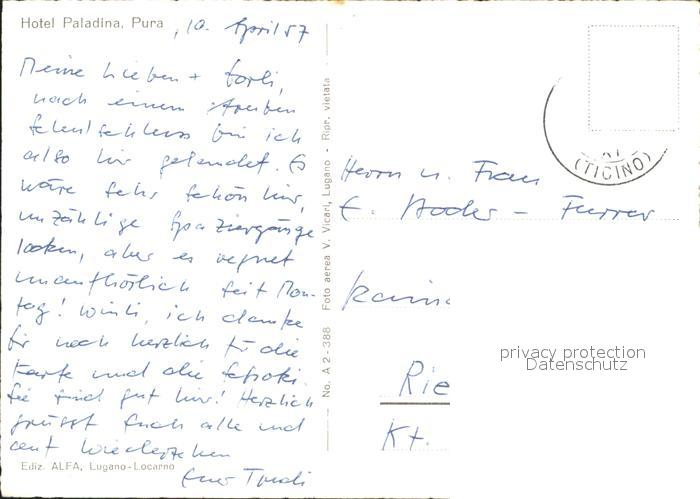 Hotel Paladina, Pura
, 10. April 57
Meine Lieben + Gorli,
nach einem strengen
Schulschluss bin ich
also hier gelandet. Es
wäre sehr schön hier,
unzählige Spaziergänge
locken, aber es regnet
unaufhörlich seit Mon-
tag! Winli, ich danke
Dir noch herzlich für die
Karte und die Schoki.
Sie sind gut hier! Herzlich
grüsst Euch alle und
auf Wiedersehen
Euer Trudi
Ediz. ALFA, Lugano-Locarno
No. A 2-388 Foto aerea V. Vicari, Lugano - Ripr. vietata
(TICINO)
Herrn u. Frau
E. - Furrer
Rie
Kt.
privacy protection
Datenschutz